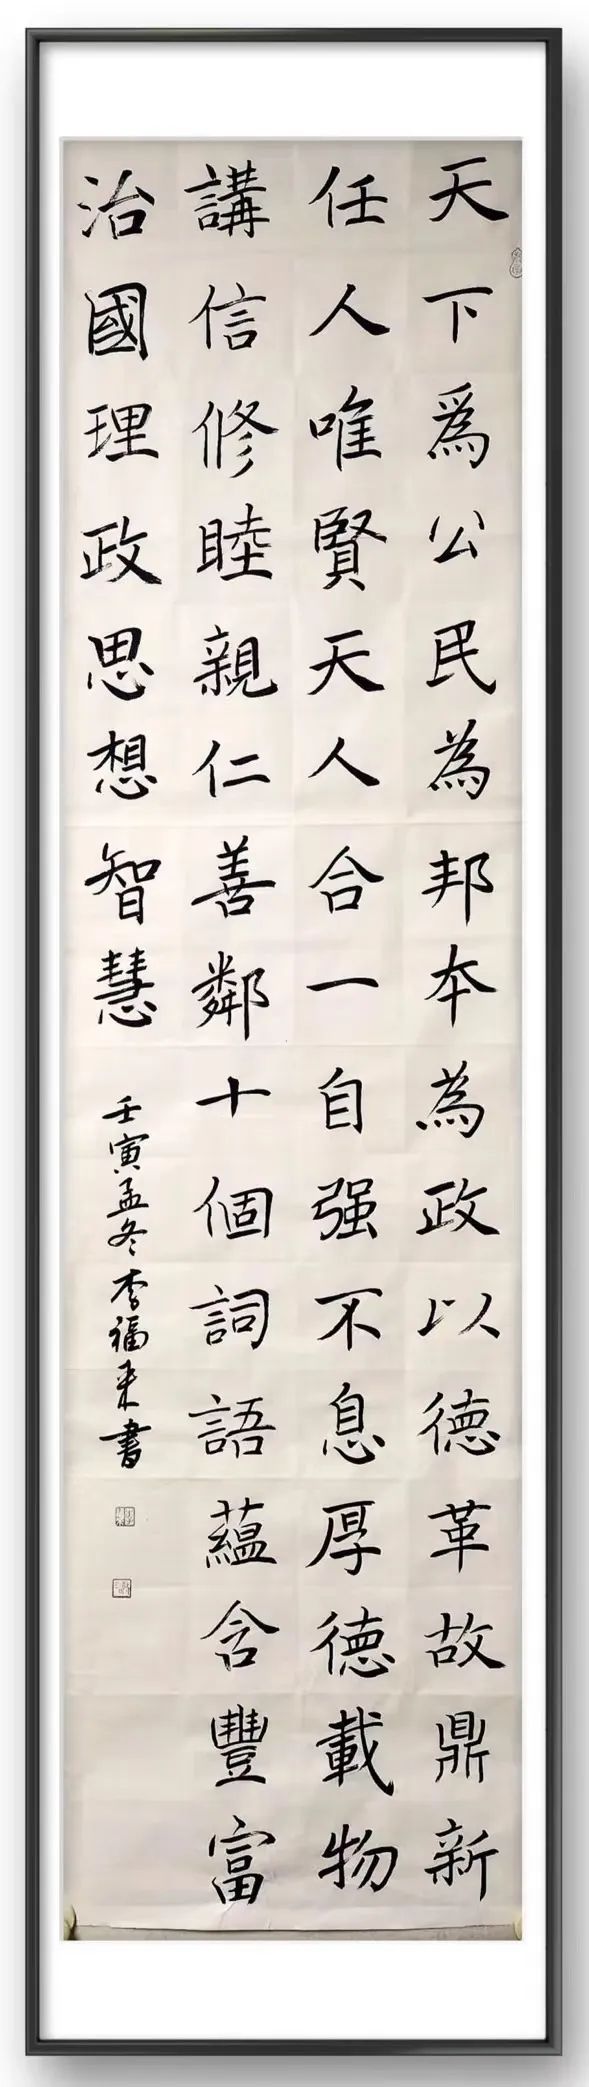 天下爲公民為邦本為政以德革故鼎新
任人唯賢天人合一自强不息厚德載物
講信修睦親仁善鄰十個詞語蘊含豐富
治國理政思想智慧
壬寅孟冬李福来書